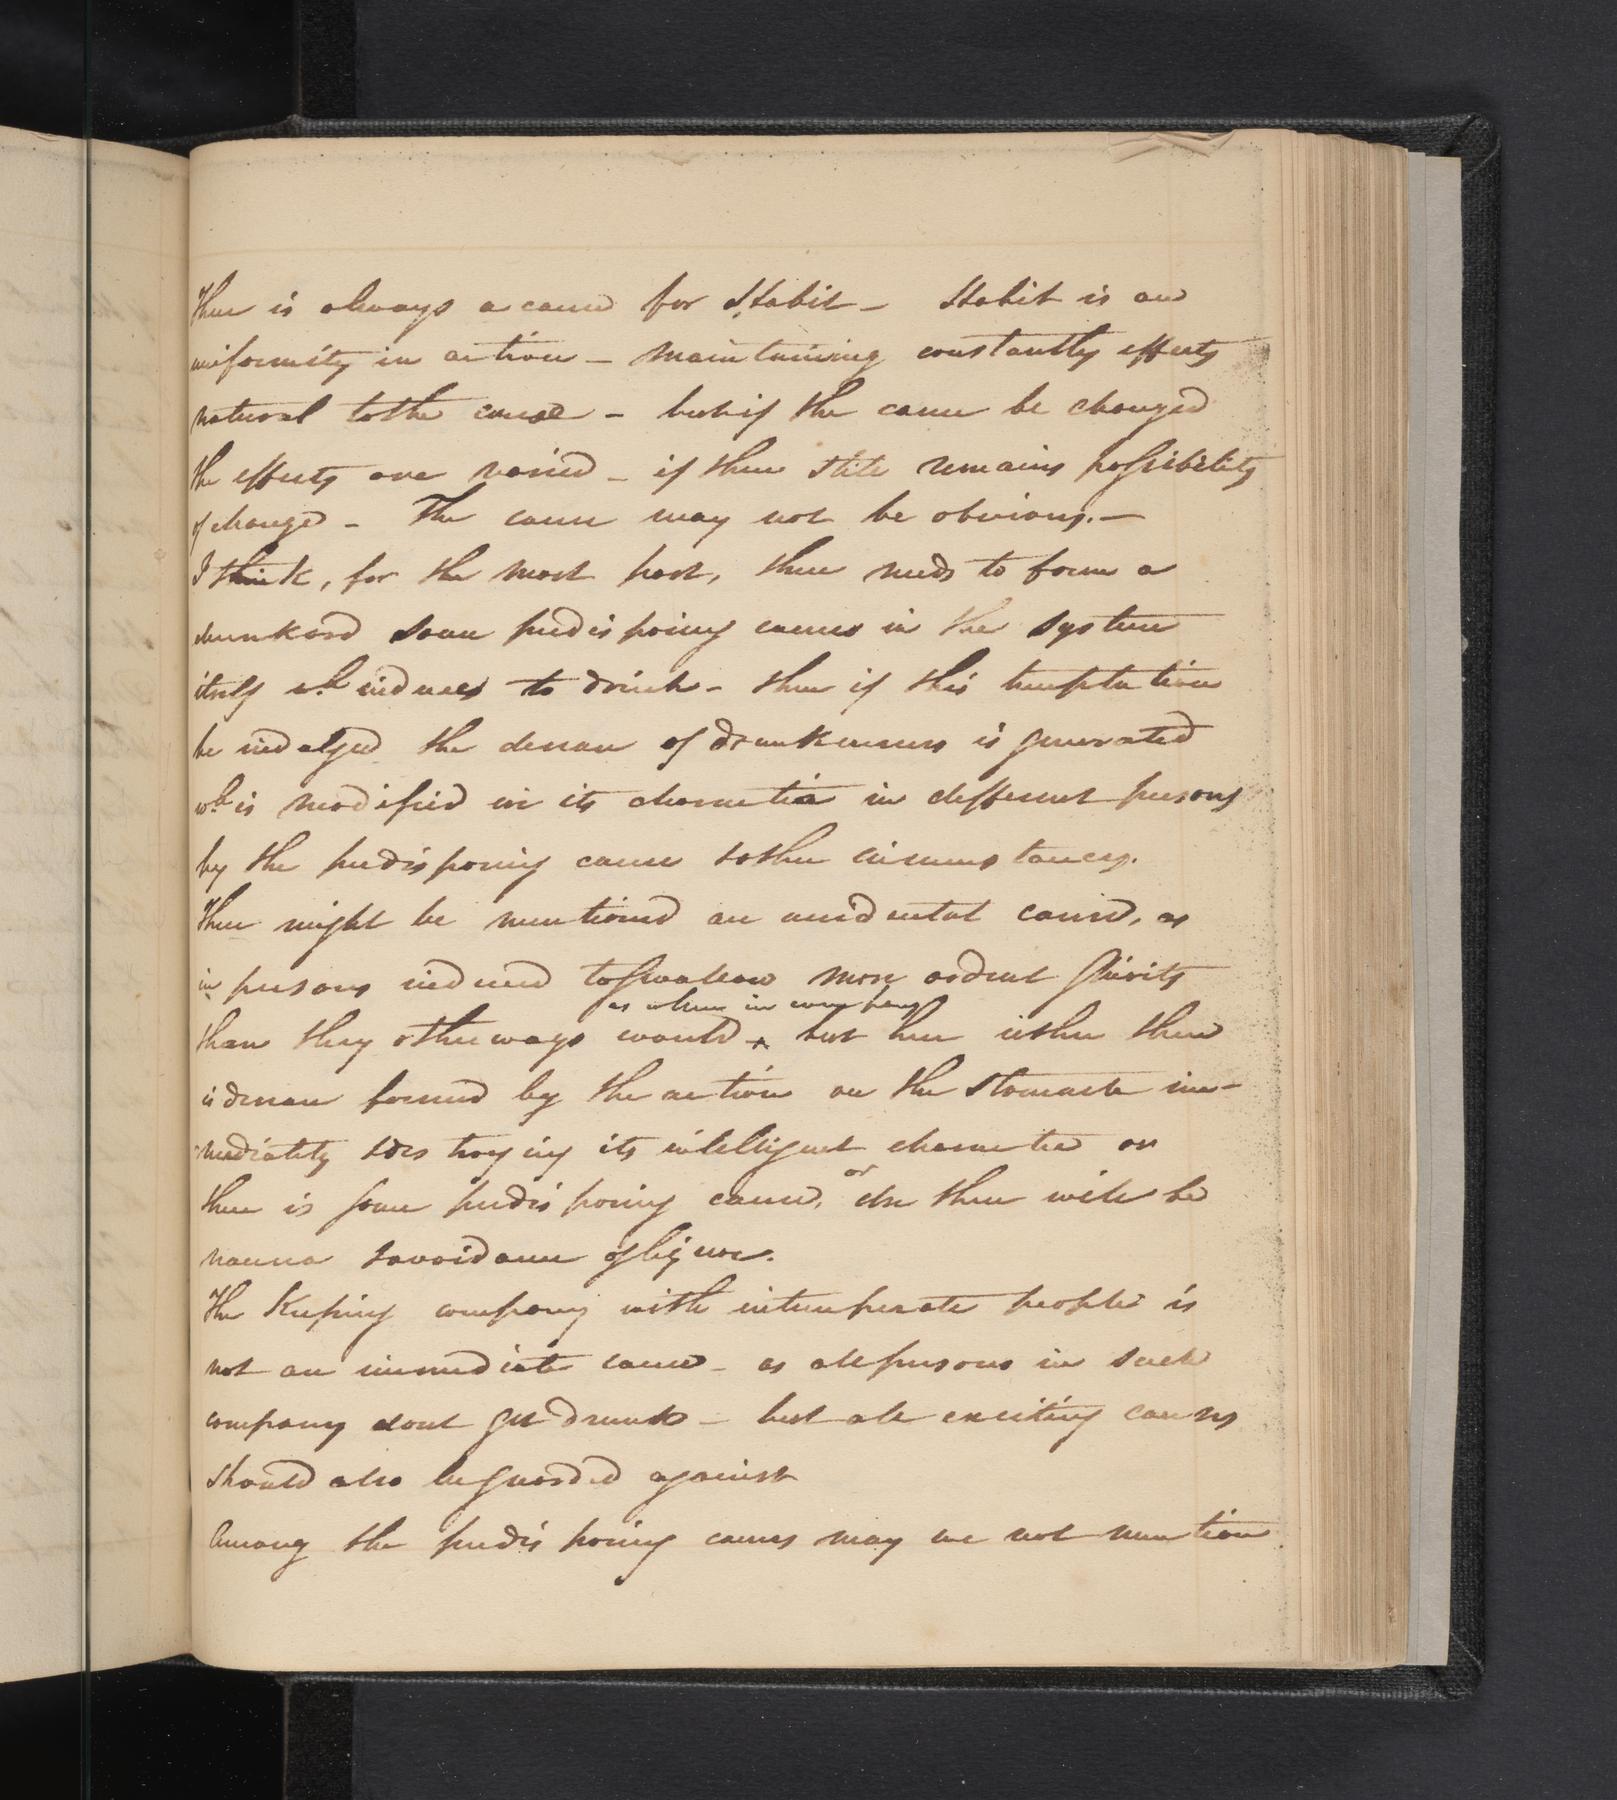 There is always a cause for Habit – Habit is an
uniformity in action – maintaining constantly effects
natural to the cause – but if the cause be changed
the effects are varied – if there still remains possibility
of change – The cause may not be obvious. –
I think, for the most part, there needs to form a
drunkard some predisposing causes in the system
itself wh induces to drink – then if this temptation
be indulged the disease of drunkenness is generated
wh is modified in its character in different persons
by the predisposing cause & other circumstances.
There might be mentioned an accidental cause, as
in persons induced to swallow more ardent spirits
as when in company
than they otherways would ^ but here either there
is disease formed by the action on the stomach im-
mediately & destroying its intelligent character or
there is some predisposing cause, or else there will be
nausea & avoidance of liquor.
The Keeping company with intemperate people is
not an immediate cause – as all persons in such
company dont get drunk – but all exciting causes
should also be guarded against
Among the predisposing causes may we not mention